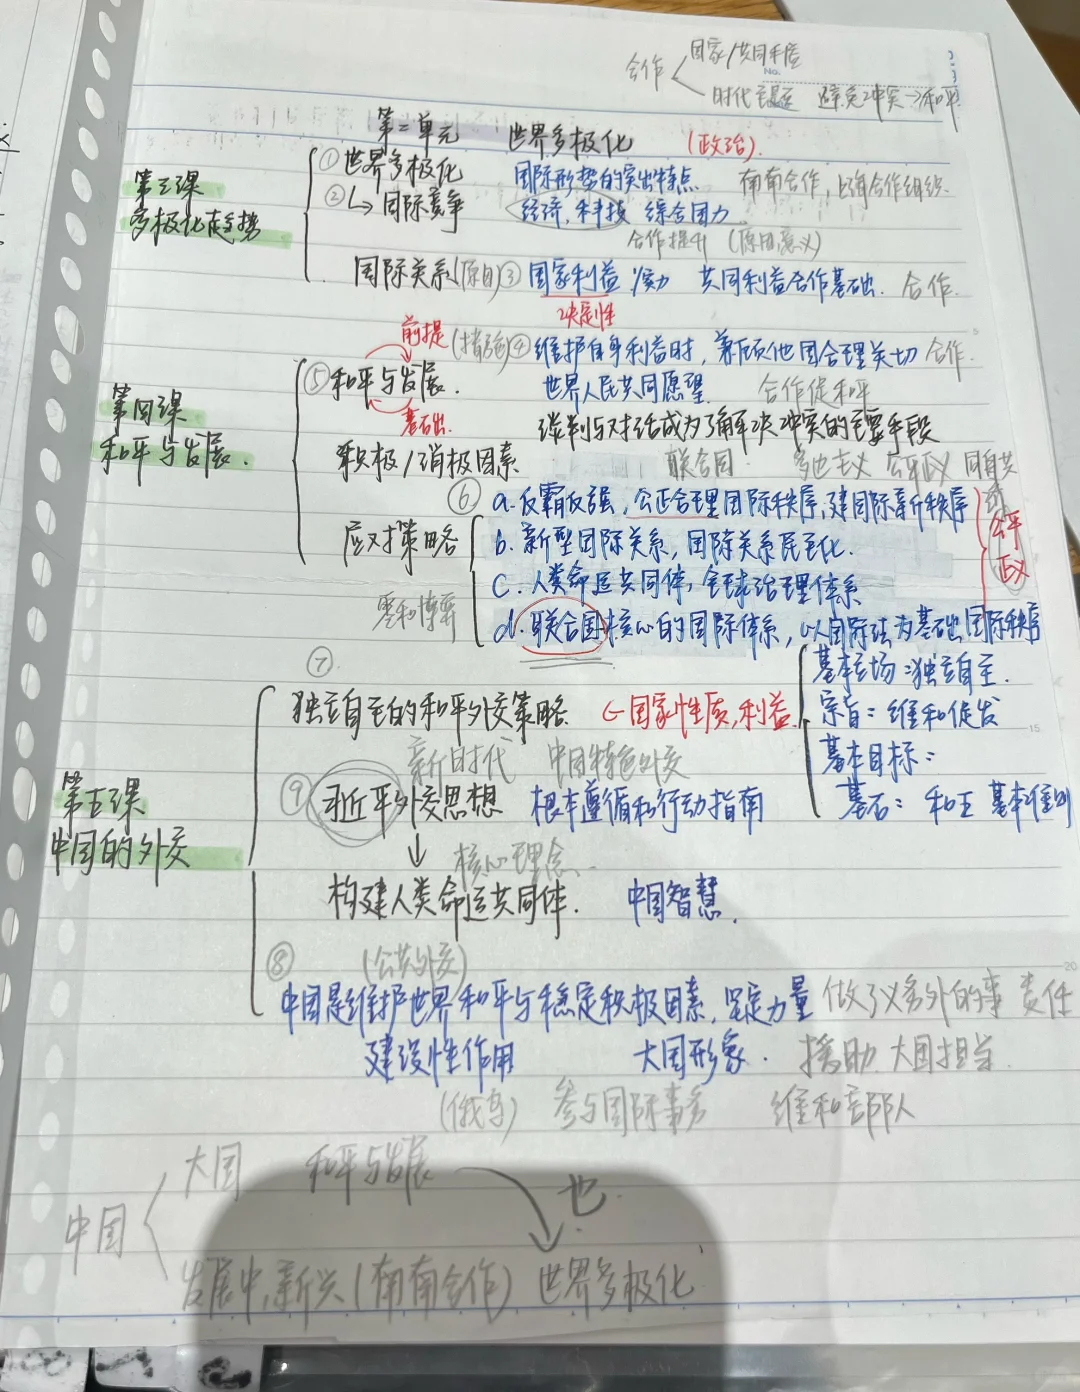 合作 国家/共同手段
No.
时代主题 避免冲突→和平
第二单元 世界多极化 (政治).
第三课 多极化趋势
①世界多极化 国际形势的突出特点 南南合作,上海合作组织
②↳国际竞争 经济,科技 综合国力
合作提升 (原因,意义)
国际关系(原因)③国家利益/实力 共同利益合作基础. 合作.
决定性
前提 (措施)④维护自身利益时,兼顾他国合理关切 合作.
第四课 和平与发展.
⑤和平与发展. 世界人民共同愿望. 合作促和平
基础. 谈判与对话成为了解决冲突的主要手段
积极/消极因素 联合国. 多边主义 公平正义
⑥ a.反霸反强,公正合理国际秩序,建国际新秩序
应对策略 b.新型国际关系,国际关系民主化.
公平正义
c.人类命运共同体,全球治理体系
零和博弈 d.联合国核心的国际体系,以国际法为基础国际秩序
⑦
基本立场:独立自主.
独立自主的和平外交策略 ←国家性质,利益. 宗旨:维和促发
新时代 中国特色外交 基本目标:
第五课 中国的外交
⑨习近平外交思想 根本遵循和行动指南 基石: 和五 基本准则
↓ 核心理念.
构建人类命运共同体. 中国智慧.
⑧ (公共外交)
中国是维护世界和平与稳定积极因素,坚定力量 做了义务外的事 责任
建设性作用 大国形象. 援助 大国担当.
(俄乌) 参与国际事务 维和部队
中国 大国 和平与发展 也.
发展中,新兴(南南合作) 世界多极化